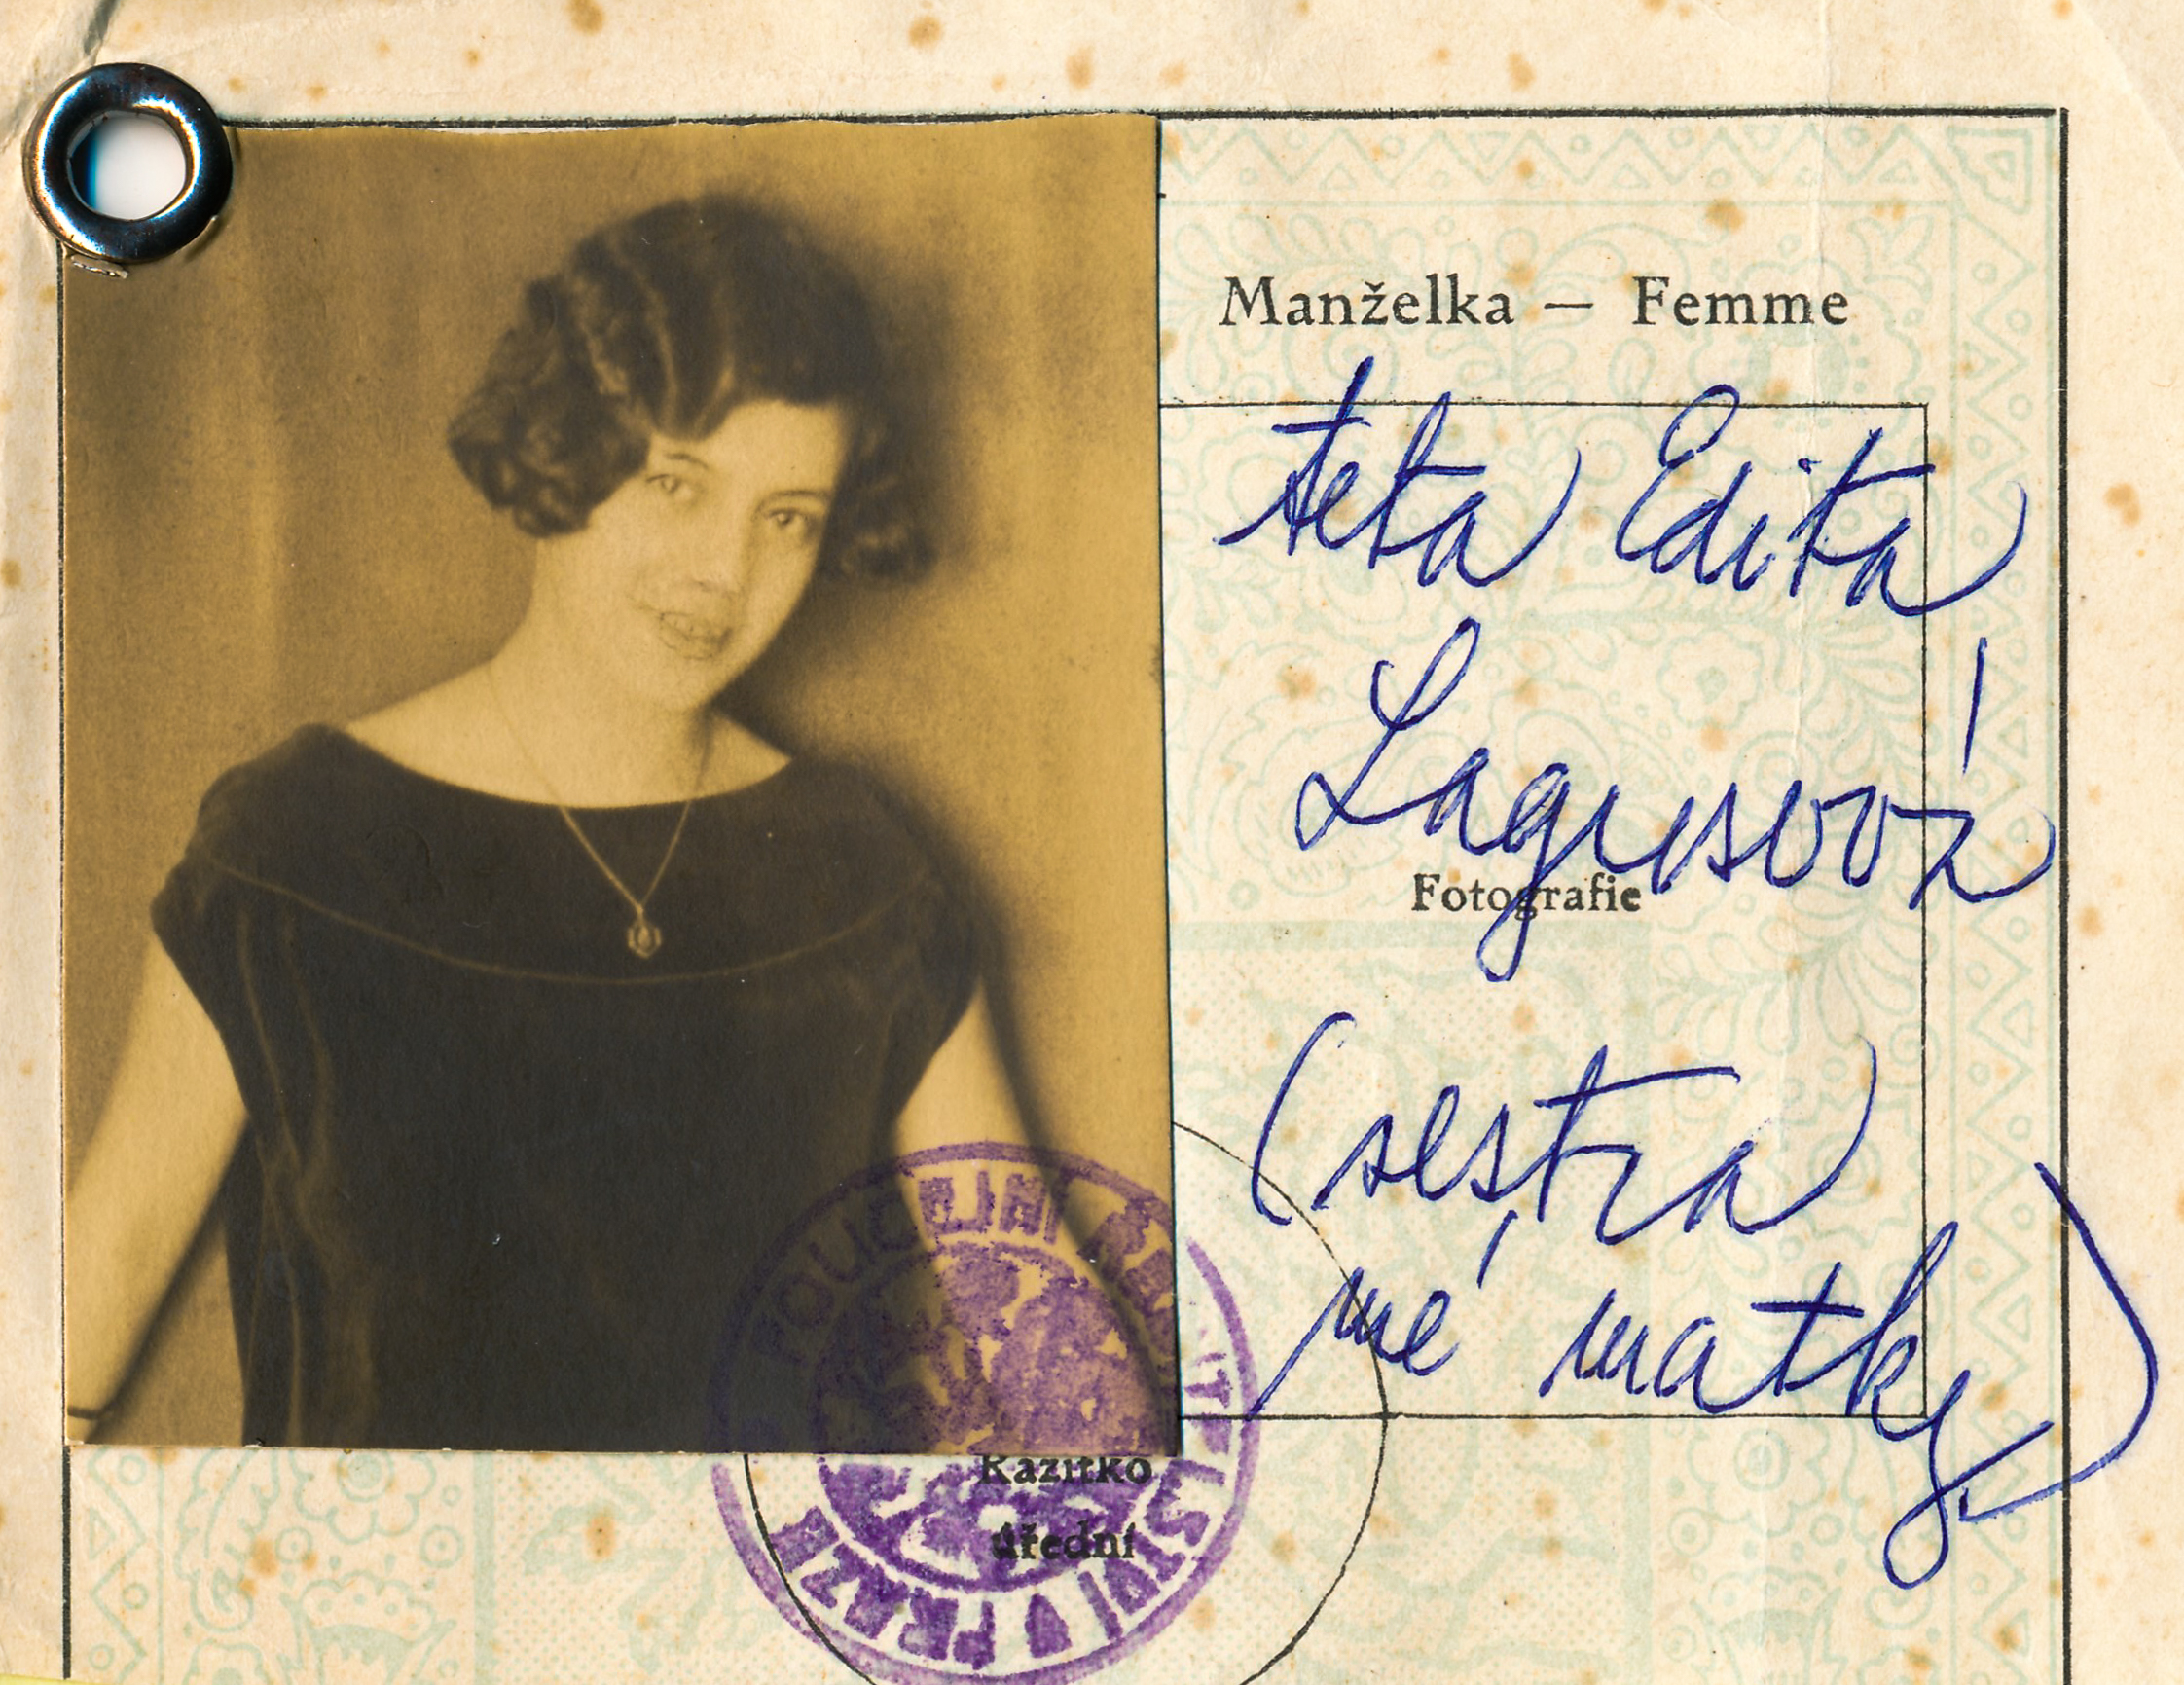 Manželka — Femme
teta Edita
Lagusová
Fotografie
(sestra
mé matky)
Razítko
úřední
POLICEJNÍ ŘEDITELSTVÍ V PRAZE